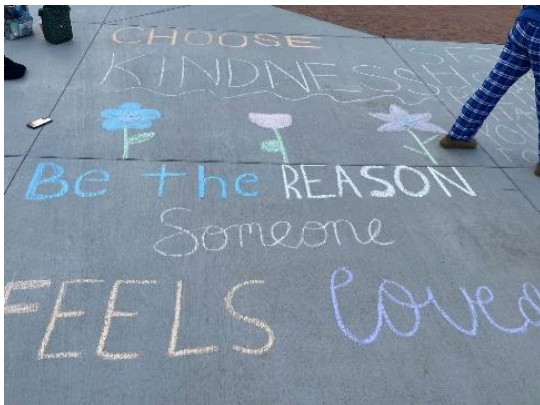 CHOOSE
KINDNESS
Be the REASON
Someone
FEELS Loved